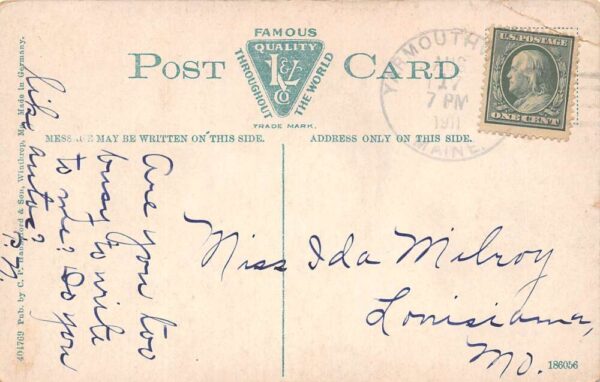 FAMOUS
QUALITY
THROUGHOUT THE WORLD
TRADE MARK.
POST CARD
MESSAGE MAY BE WRITTEN ON THIS SIDE.
ADDRESS ONLY ON THIS SIDE.
YARMOUTHV
17
7 PM
1911
MAINE.
U.S. POSTAGE
ONE CENT
Are you too
busy to write
to me? Do you
like autos?
Miss Ida Milroy
Louisiana,
Mo.
404769 Pub. by C. & Son, Winthrop, Me. Made in Germany.
186056